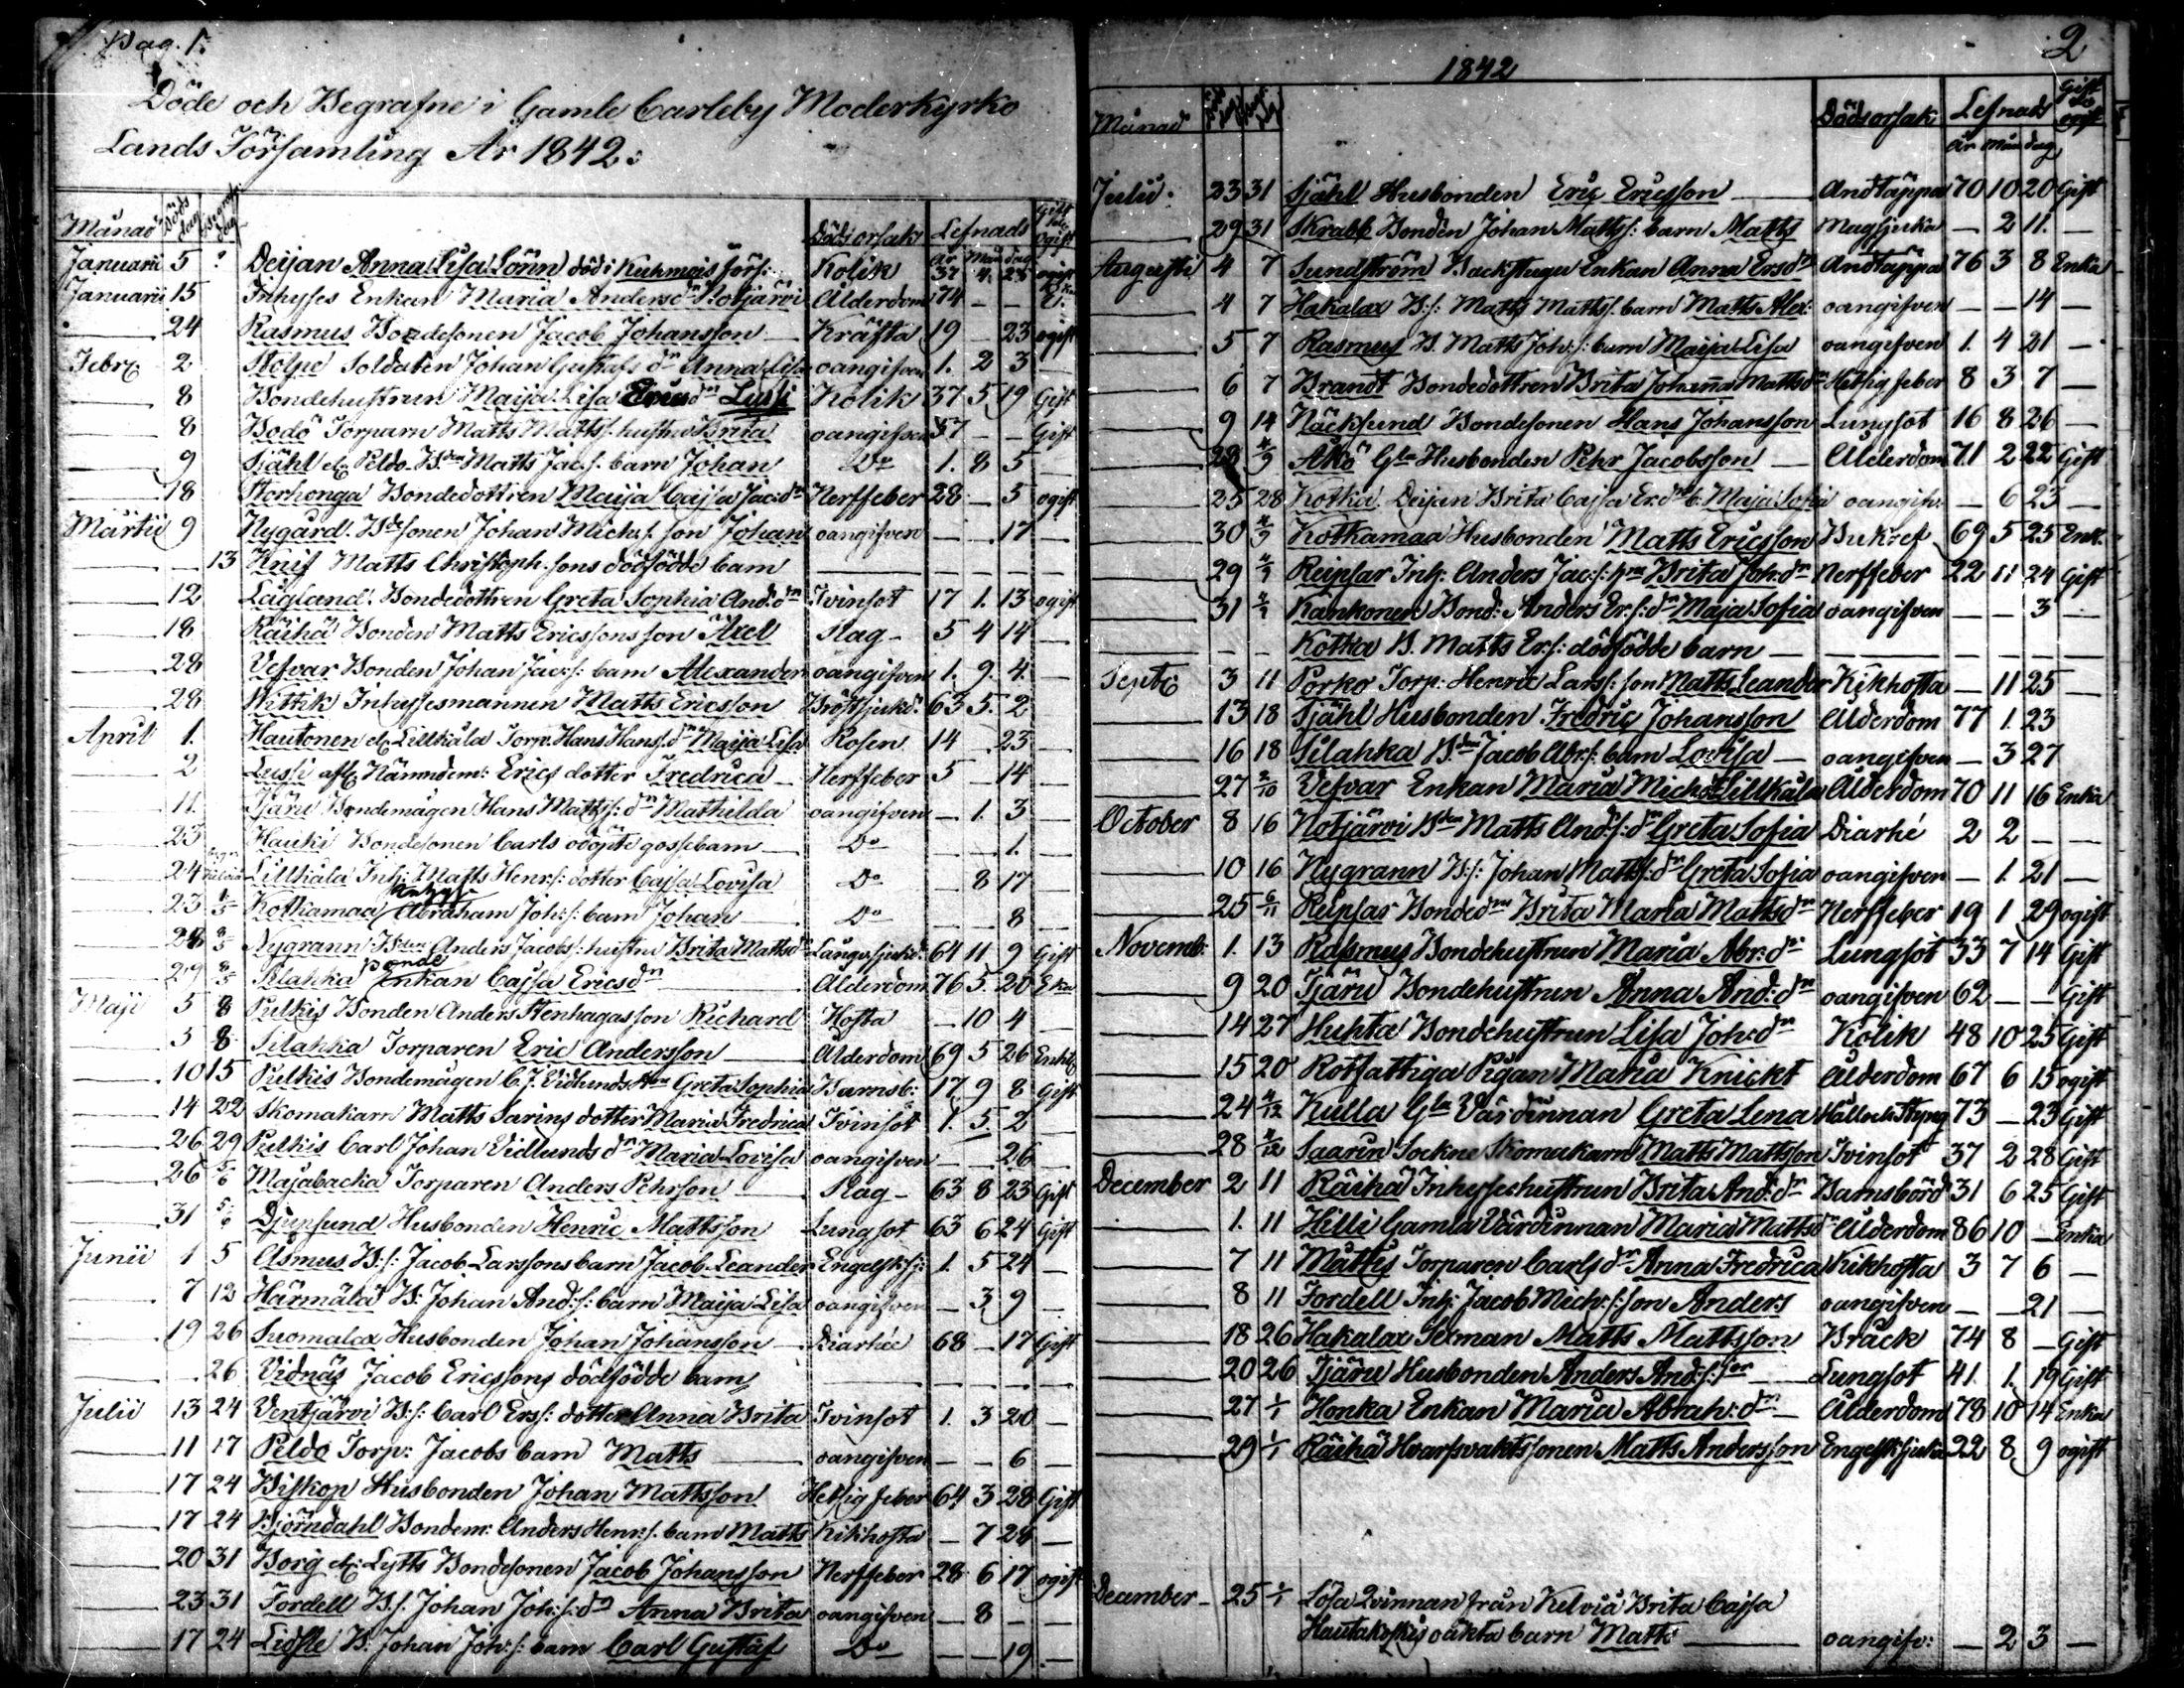 Pag. 1.
Döde och Begrafne i Gamle Carleby Moderkyrko
Lands Församling År 1842.
Månad Döds dag Begrafn: dag Dödsorsak Lefnads Gift eller Ogift
år Mån dag
Januarii 5 ? Deijan Anna Lisa Lönn död i Kuhmois förs: Kolik 37 4 28 ogift
Januarii 15 Inhyses Enkan Maria Andersdr Notjärvi Ålderdom 74 - - E:
24 Rasmus Bondesonen Jacob Johansson Kräfta 19 - 23 ogift
Febr. 2 Stolpe Soldaten Johan Gustafs dr Anna Lisa oangifven 1. 2 3 —
8 Bondehustrun Maija Lisa Ericsdr Lussi Kolik 37 5 19 Gift
8 Bodö Torparn Matts Matts: hustru Brita oangifven 57 - - Gift
9 Sjähl et Peldo Bden Matts Jac:s: barn Johan Do 1. 8 5 —
18 Storhonga Bondedottren Maija Cajsa Jac:dr Nerffeber 28 - 5 ogift
Martii 9 Nygård Bdesonen Johan Mich:s: son Johan oangifven — - 17 —
13 Knif Matts Christoph:sons dödfödde barn
12 Lågland Bondedottren Greta Sophia And:dr Tvinsot 17 1. 13 ogift
18 Räihä Bonden Matts Ericssons son Axel Slag 5 4 14 —
28 Vefvar Bonden Johan Jac:s: barn Alexander oangifven 1. 9. 4. —
28 Wittik Inhyssesmannen Matts Ericsson Bröstsjukd: 63 5. 2
April 1. Hautonen et Lillkåla Torp. Hans Hans:dr Maija Lisa Rosen 14 - 23 —
2 Lussi afl. Nämndem: Erics dotter Fredrica Nerffeber 5 - 14 —
11. Tjäru Bondemågen Hans Matts:dr Mathilda oangifven — 1. 3 —
23 Hauki Bondesonen Carls odöpte gossebarn Do — - 1. —
24 Lillkåla Inh: Matts Henr:s: dotter Cajsa Lovisa Do - 8 17 —
23 1/5 Kotkamaa Inhyss Abraham Joh:s: barn Johan Do - - 8 —
28 8/5 Nygrann Bden Anders Jacobs: hustru Brita Mattsdr Långv.sjukd: 64 11 9 Gift
29 8/5 Silahka Bonde Enkan Cajsa Ericsdr Ålderdom 76 5. 20 Eka
Maji 5 8 Pulkis Bonden Anders Stenhagas son Richard Hosta — 10 4 —
3 8 Silahka Torparen Eric Andersson Ålderdom 69 5 26 Enkl.
10 15 Pulkis Bondemågen C. J. Vidlunds Hu Greta Sophia Barnsb: 17 9 8 Gift
14 22 Skomakarn Matts Sarins dotter Maria Fredrica Tvinsot 1. 5 2 —
26 29 Pulkis Carl Johan Vidlunds dr Maria Lovisa oangifven — - 26 —
26 5/6 Majabacka Torparen Anders Pehrson Slag 63 8 23 Gift
31 5/6 Djupsund Husbonden Henric Mattsson Lungsot 63 6 24 Gift
Junii 1 5 Asmus B:s: Jacob Larssons barn Jacob Leander Engelsk sj: 1. 5 24 —
7 12 Härmälä B: Johan And:s: barn Maija Lisa oangifven — 3 9 —
19 26 Suomalax Husbonden Johan Johansson Diarhée 68 - 17 Gift
26 Vidnäs Jacob Ericssons dödfödde barn
Julii 13 24 Ventjärvi B:s: Carl Ers: dotter Anna Brita Tvinsot 1. 3 20 —
11 17 Peldo Torp: Jacobs barn Matts oangifven — - 6 —
17 24 Biskop Husbonden Johan Mattsson Hetsig feber 64 3 28 Gift
17 24 Björndahl Bondem: Anders Henr:s: barn Matts Kikhosta — 7 28 —
20 31 Borg et Lytts Bondesonen Jacob Johansson Nerffeber 28 6 17 ogift
23 31 Fordell B:s: Johan Joh:s: dr Anna Brita oangifven — 8 - —
17 24 Lidsle B: Johan Joh:s: barn Carl Gustaf Do — - 19 —
2
1842
Månad Dödsorsak Lefnads Gift ogift
år Mån dag
Julii 23 31 Sjähl Husbonden Eric Ericsson Andtäppa 70 10 20 Gift
29 31 Skrabb Bonden Johan Matts: barn Matts Magsjuka — 2 11. —
Augusti 4 7 Sundström Backstugu Enkan Anna Ersdr Andtäppa 76 3 8 Enka
4 7 Hakalax B:s: Matts Matts: barn Matts Alex: oangifven — — 14 —
5 7 Rasmus B. Matts Joh:s: barn Maija Lisa oangifven 1. 4 21 —
6 7 Brandt Bondedottren Brita Johanna Mattsdr Hetsig feber 8 3 7 —
9 14 Näcksund Bondesonen Hans Johansson Lungsot 16 8 26 —
28 4/9 Åkö Gla Husbonden Pehr Jacobsson Ålderdom 71 2 22 Gift
25 28 Kotka Deijan Brita Cajsa Er:dr b. Maja Sofia oangifv: - 6 23 —
30 4/9 Kotkamaa Husbonden Matts Ericsson Bukref 69 5 25 Enk.
29 4/9 Reipsar Inh: Anders Jac:s: hru Brita Joh:dr Nerffeber 22 11 24 Gift
31 4/9 Kankonen Bond: Anders Er:s: dr Maja Sofia oangifven — — 3 —
Kotka B. Matts Er:s: dödfödde barn
Septr 3 11 Porko Torp: Henric Lars: son Matts Leander Kikhosta — 11 25 —
13 18 Sjähl Husbonden Fredric Johansson Ålderdom 77 1. 23
16 18 Silahka Bden Jacob Abr:s: barn Lovisa oangifven — 3 27
27 2/10 Vefvar Enkan Maria Mich:dr Lillkåla Ålderdom 70 11 16 Enka
October 8 16 Notjärvi Bden Matts And:s: dr Greta Sofia Diarhé 2 2 — —
10 16 Nygrann B:s: Johan Matts: dr Greta Sofia oangifven — 1 21 —
25 6/11 Reipsar Bondedr Brita Maria Mattsdr Nerffeber 19 1 29 ogift
Novemb: 1. 13 Rasmus Bondehustrun Maria Abr:dr Lungsot 33 7 14 Gift
9 20 Tjäru Bondehustrun Anna And:dr oangifven 62 — — Gift
14 27 Huhta Bondehustrun Lisa Joh:dr Kolik 48 10 25 Gift
15 20 Rotfattiga Pigan Maria Knickt Ålderdom 67 6 15 ogift
24 4/12 Kulla Gla Värdinnan Greta Lena Håll och Styng 73 — 23 Gift
28 4/12 Saarin Sockne Skomakarn Matts Mattsson Tvinsot 37 2 28 Gift
December 2 11 Räihä Inhyseshustrun Brita And:dr Barnsbörd 31 6 25 Gift
1. 11 Hilli Gamla Värdinnan Maria Mattsdr Ålderdom 86 10 — Enka
7 11 Mattis Torparen Carls dr Anna Fredrica Kikhosta 3 7 6 —
8 11 Fordell Inh: Jacob Mich:s: son Anders oangifven — — 21 —
18 26 Hakalax Sexman Matts Mattsson Bråck 74 8 — Gift
20 26 Tjäru Husbonden Anders And:s:son Lungsot 41. 1. 19 Gift
27 1/1 Honka Enkan Maria Abrah:dr Ålderdom 78 10 14 Enka
29 1/1 Räihä Hvarfsvaktssonen Matts Andersson Engelsk sjuka 22 8 9 ogift
December 25 1/1 Lösa Qvinnan från Kelviå Brita Cajsa
Hautakoskis oäkta barn Matts oangifv: — 2 3 —